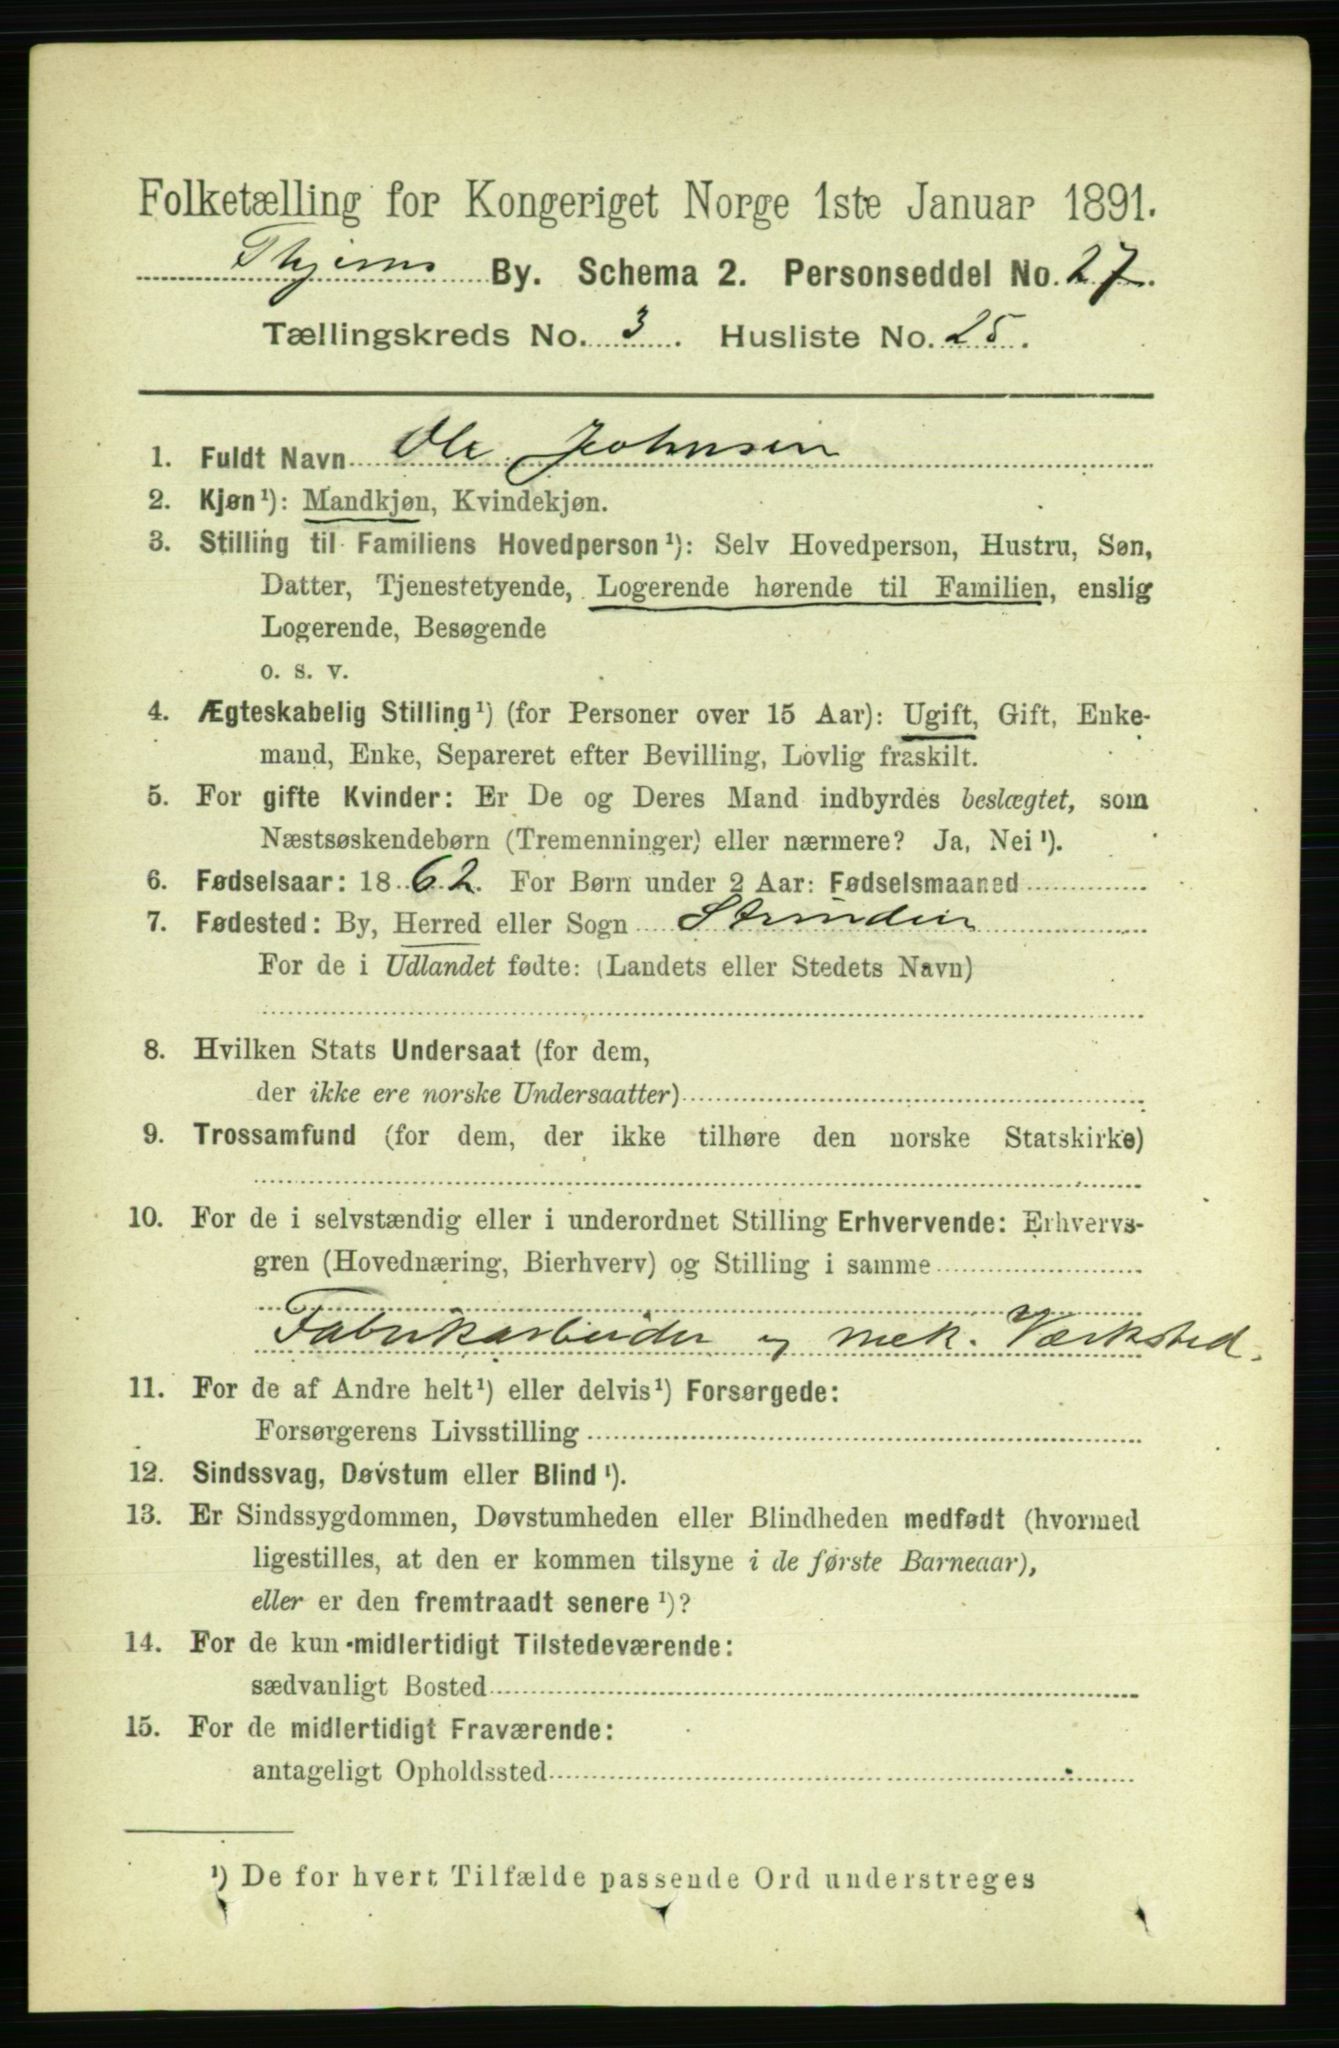 Folketælling for Kongeriget Norge 1ste Januar 1891.
Thjems By. Schema 2. Personseddel No. 27.
Tællingskreds No. 3. Husliste No. 25.
1. Fuldt Navn Ole Johnsen
2. Kjøn¹): Mandkjøn, Kvindekjøn.
3. Stilling til Familiens Hovedperson¹): Selv Hovedperson, Hustru, Søn,
Datter, Tjenestetyende, Logerende hørende til Familien, enslig
Logerende, Besøgende
o. s. v.
4. Ægteskabelig Stilling¹) (for Personer over 15 Aar): Ugift, Gift, Enke-
mand, Enke, Separeret efter Bevilling, Lovlig fraskilt.
5. For gifte Kvinder: Er De og Deres Mand indbyrdes beslægtet, som
Næstsøskendebørn (Tremenninger) eller nærmere? Ja, Nei¹).
6. Fødselsaar: 1862. For Børn under 2 Aar: Fødselsmaaned
7. Fødested: By, Herred eller Sogn Strinden
For de i Udlandet fødte: (Landets eller Stedets Navn)
8. Hvilken Stats Undersaat (for dem,
der ikke ere norske Undersaatter)
9. Trossamfund (for dem, der ikke tilhøre den norske Statskirke)
10. For de i selvstændig eller i underordnet Stilling Erhvervende: Erhvervs-
gren (Hovednæring, Bierhverv) og Stilling i samme
Fabrikarbeider og mek. Værksted.
11. For de af Andre helt¹) eller delvis¹) Forsørgede:
Forsørgerens Livsstilling
12. Sindssvag, Døvstum eller Blind¹).
13. Er Sindssygdommen, Døvstumheden eller Blindheden medfødt (hvormed
ligestilles, at den er kommen tilsyne i de første Barneaar),
eller er den fremtraadt senere¹)?
14. For de kun midlertidigt Tilstedeværende:
sædvanligt Bosted
15. For de midlertidigt Fraværende:
antageligt Opholdssted
¹) De for hvert Tilfælde passende Ord understreges